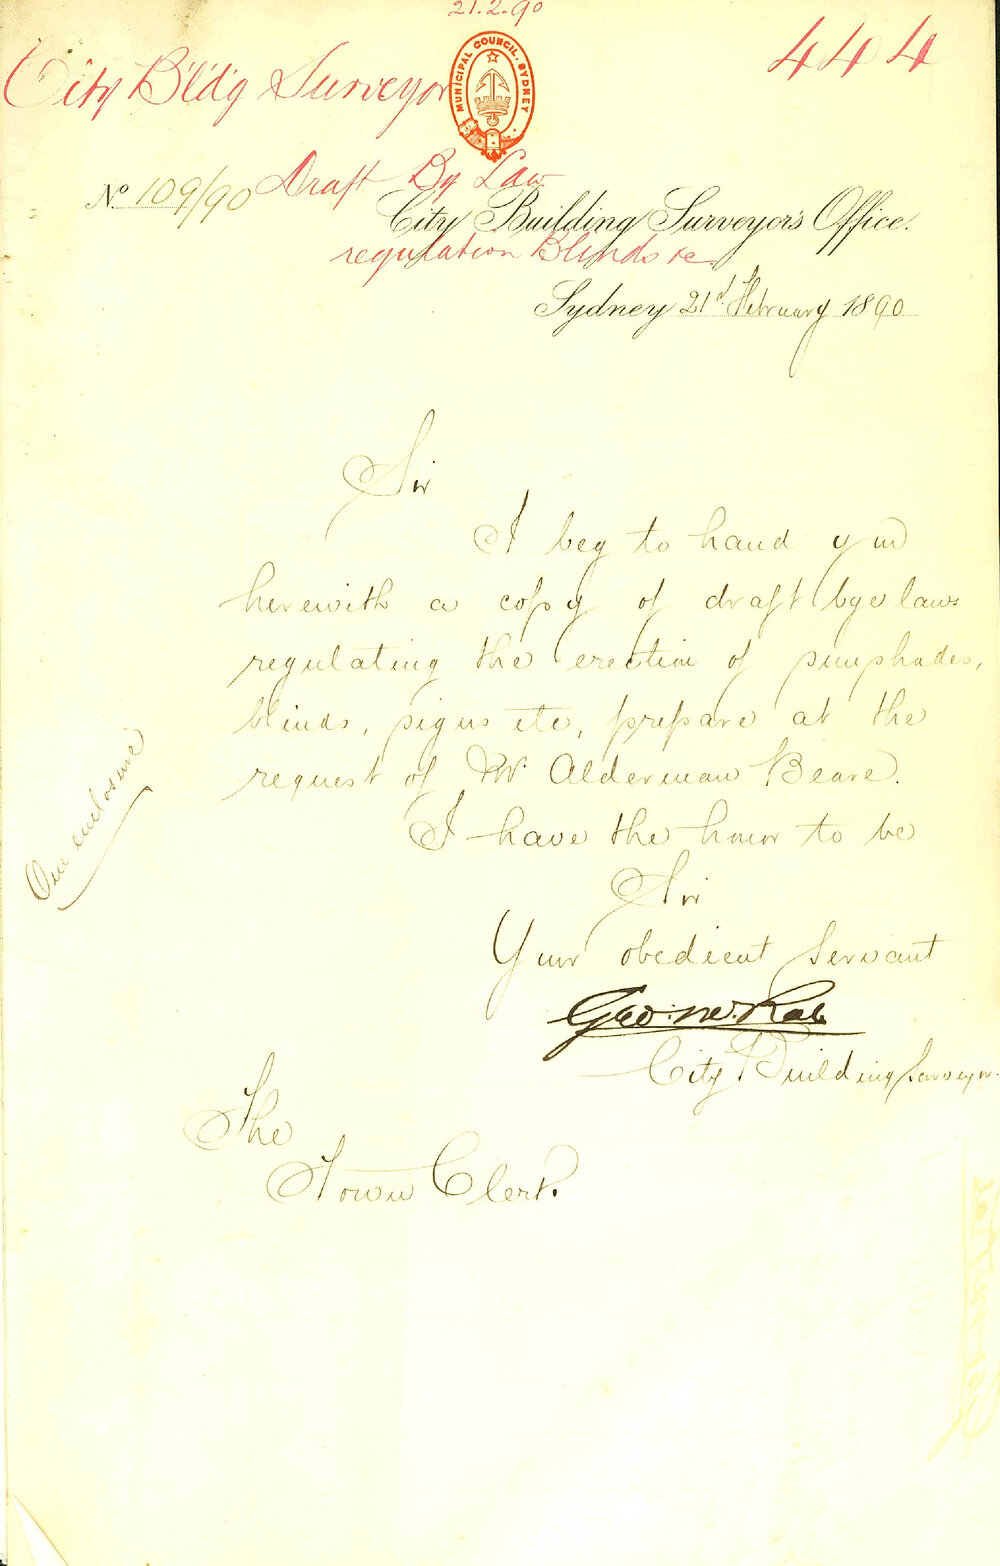 21.2.90
444
City B'ld'g Surveyor
MUNICIPAL COUNCIL. SYDNEY
Draft By Law
No 109/90
City Building Surveyor's Office.
regulation Blinds &c
Sydney 21st February 1890
Sir
I beg to hand you
herewith a copy of draft bye laws
regulating the erection of sunshades,
blinds, signs etc, prepare at the
request of Mr Alderman Beare.
One enclosure
I have the honor to be
Sir
Your obedient Servant
Geo.
City Building Surveyor.
The
Town Clerk.